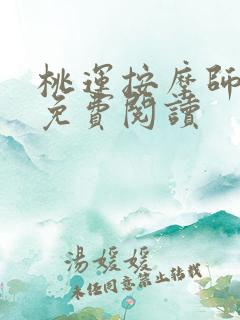 桃運按摩師
免費閱讀
湯媛媛
未經同意禁止轉載